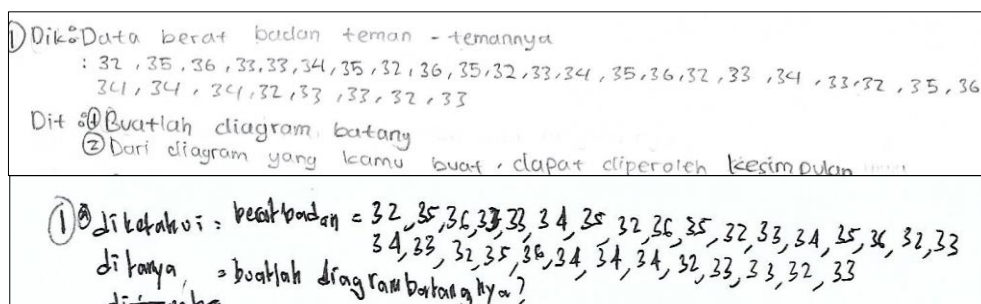 ① Dik : Data berat badan teman - temannya
: 32, 35, 36, 33, 33, 34, 35, 32, 36, 35, 32, 33, 34, 35, 36, 32, 33, 34, 33, 32, 35, 36
34, 34, 34, 32, 33, 33, 32, 33
Dit : ① Buatlah diagram batang
② Dari diagram yang kamu buat, dapat diperoleh kesimpulan ......
① diketahui : berat badan = 32, 35, 36, 33, 33, 34, 35, 32, 36, 35, 32, 33, 34, 35, 36, 32, 33
34, 33, 32, 35, 36, 34, 34, 34, 32, 33, 33, 32, 33
ditanya, = buatlah diagram batangnya?